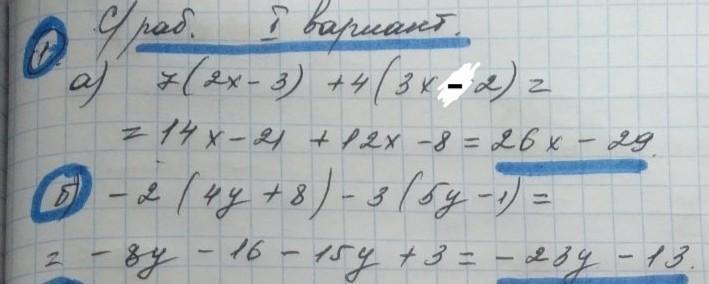 С/раб. I вариант.
1
а) 7(2x-3) +4(3x-2)=
=14x-21 +12x-8=26x-29.
б) -2(4y+8)-3(5y-1)=
= -8y-16-15y+3=-23y-13.